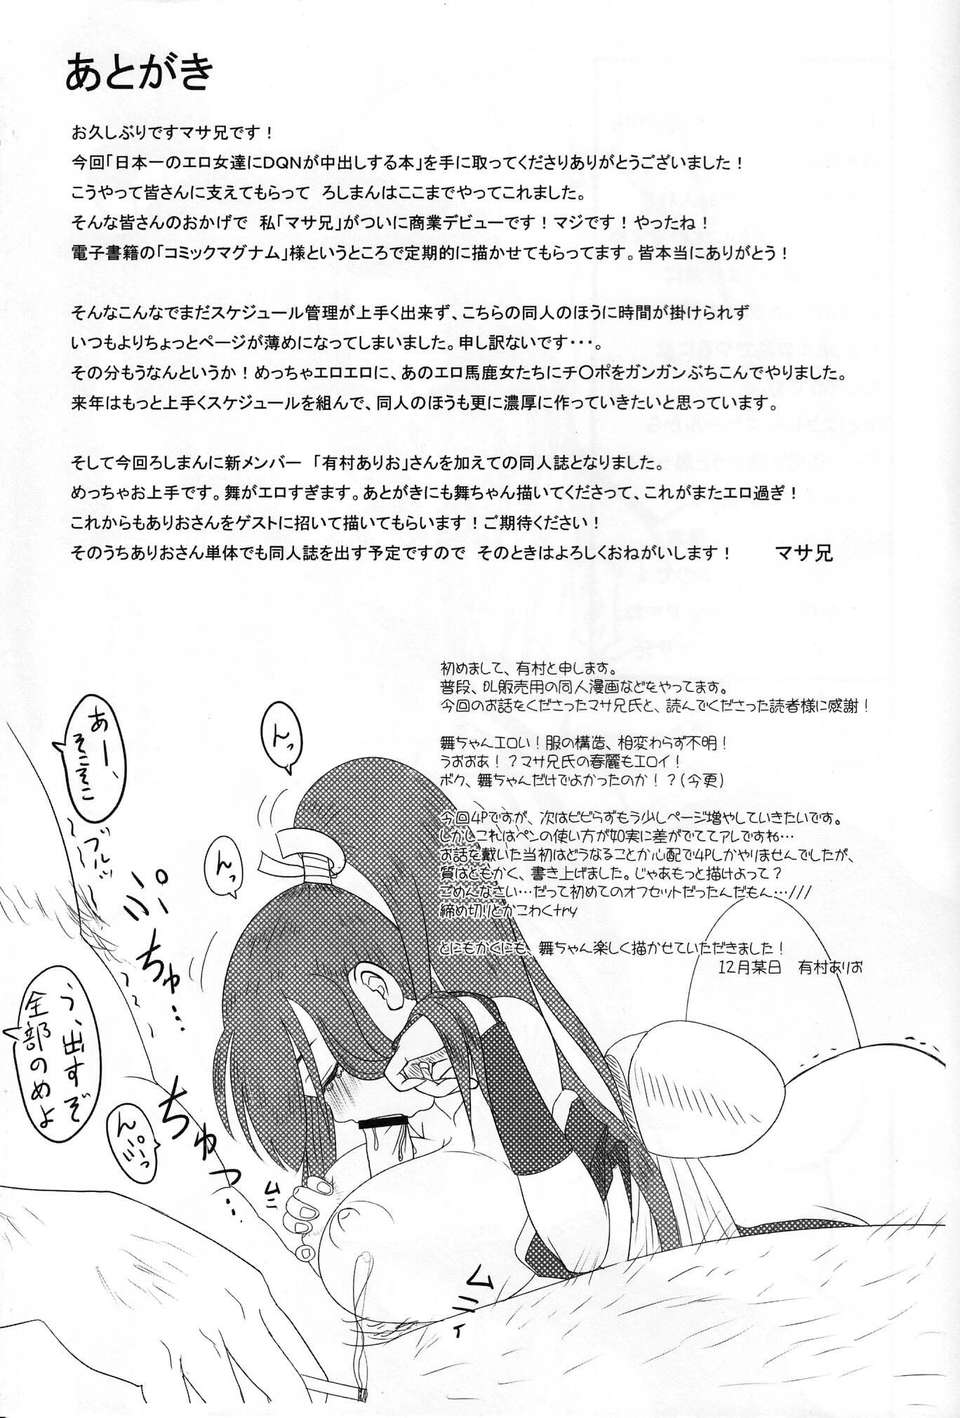 あとがき
お久しぶりですマサ兄です！
今回「日本一のエロ女達にDQNが中出しする本」を手に取ってくださりありがとうございました！
こうやって皆さんに支えてもらって ろしまんはここまでやってこれました。
そんな皆さんのおかげで 私「マサ兄」がついに商業デビューです！マジです！やったね！
電子書籍の「コミックマグナム」様というところで定期的に描かせてもらってます。皆本当にありがとう！
そんなこんなでまだスケジュール管理が上手く出来ず、こちらの同人のほうに時間が掛けられず
いつもよりちょっとページが薄めになってしまいました。申し訳ないです・・・。
その分もうなんというか！めっちゃエロエロに、あのエロ馬鹿女たちにチ〇ポをガンガンぶちこんでやりました。
来年はもっと上手くスケジュールを組んで、同人のほうも更に濃厚に作っていきたいと思っています。
そして今回ろしまんに新メンバー 「有村ありお」さんを加えての同人誌となりました。
めっちゃお上手です。舞がエロすぎます。あとがきにも舞ちゃん描いてくださって、これがまたエロ過ぎ！
これからもありおさんをゲストに招いて描いてもらいます！ご期待ください！
そのうちありおさん単体でも同人誌を出す予定ですので そのときはよろしくおねがいします！ マサ兄
初めまして、有村と申します。
普段、DL販売用の同人漫画などをやってます。
今回のお話をくださったマサ兄氏と、読んでくださった読者様に感謝！
舞ちゃんエロい！服の構造、相変わらず不明！
うおおあ！？マサ兄氏の春麗もエロイ！
ボク、舞ちゃんだけでよかったのか！？（今更）
今回4Pですが、次はビビらずもう少しページ増やしていきたいです。
しかしこれはペンの使い方が如実に差がでててアレですね…
お話を戴いた当初はどうなることか心配で4Pしかやりませんでしたが、
質はともかく、書き上げました。じゃあもっと描けよって？
ごめんなさい…だって初めてのオフセットだったんだもん…///
締め切りとかこわくtry
とにもかくにも、舞ちゃん楽しく描かせていただきました！
12月某日 有村ありお
あー、
そこそこ
ブルッ
んっ
んっ
ぷちゅ…
ちゅっ…
う、出すぞ
全部のめよ
ん
ムニ
ムニィ